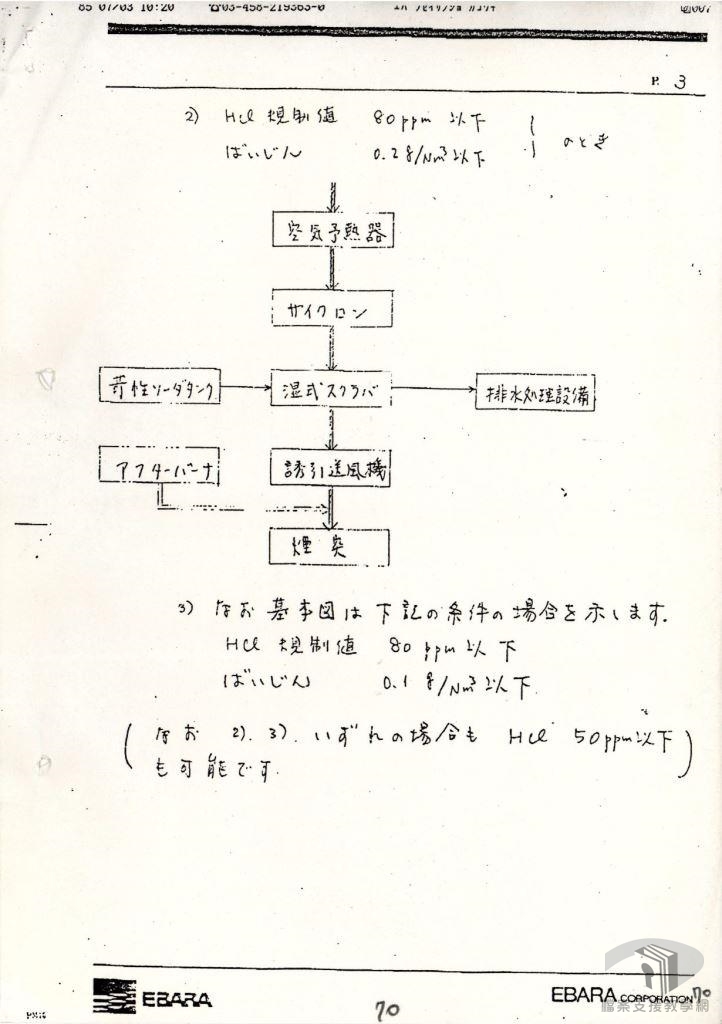 85 07/03 10:20
P. 3
2) HCl 規制値 80ppm 以下
ばいじん 0.2g/Nm³以下
のとき
空気予熱器
サイクロン
苛性ソーダタンク
湿式スクラバ
排水処理設備
アフターバーナ
誘引送風機
煙突
3) なお 基本図は 下記の条件の場合を示します.
HCl 規制値 80 ppm 以下
ばいじん 0.1 g/Nm³以下.
(なお 2). 3). いずれの場合も HCl 50ppm以下
も可能です.)
EBARA
70
EBARA CORPORATION
70
檔案支援教學網